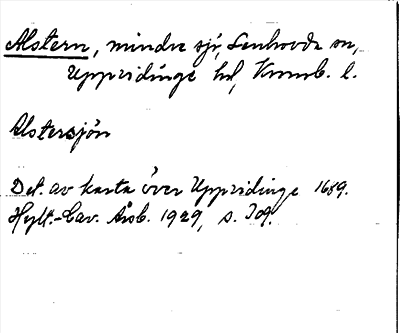 Alstern, mindre sjö, Lenhovda sn,
Uppvidinge hd, Kronob. l.
Alstersjön
Det. av karta över Uppvidinge 1689.
Hylt.-Cav. Årsb. 1929, s.